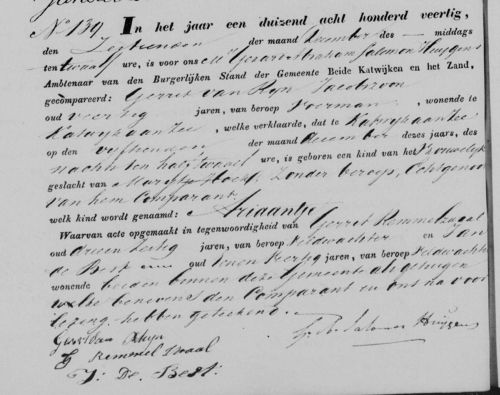 No 139 In het jaar een duizend acht honderd veertig,
den Zestienden der maand December des middags
ten twaalf ure, is voor ons Mr Gerard Abraham Salomon Huygens
Ambtenaar van den Burgerlijken Stand der Gemeente Beide Katwijken en het Zand,
gecompareerd: Gerrit van Rijn Jacobzoon
oud veertig jaren, van beroep Voerman, wonende te
Katwijk aan Zee, welke verklaarde, dat te Katwijk aan Zee
op den vijftienden der maand december dezes jaars, des
nachts ten half twaalf ure, is geboren een kind van het Vrouwelijk
geslacht van Maartje Hoek, zonder beroep, Echtgenoot
van hem Comparant
welk kind wordt genaamd: Ariaantje
Waarvan acte opgemaakt in tegenwoordigheid van Gerrit Remmelzwaal
oud jaren, van beroep Veldwachter en Jan
de Best oud jaren, van beroep Veldwachter
wonende beiden binnen deze Gemeente als getuigen
welke benevens den Comparant en ons na voor
lezing hebben geteekend.
Gerrit van Rhijn
G Remmel Swaal
J: De Best:
G. A. Salomon Huijgens